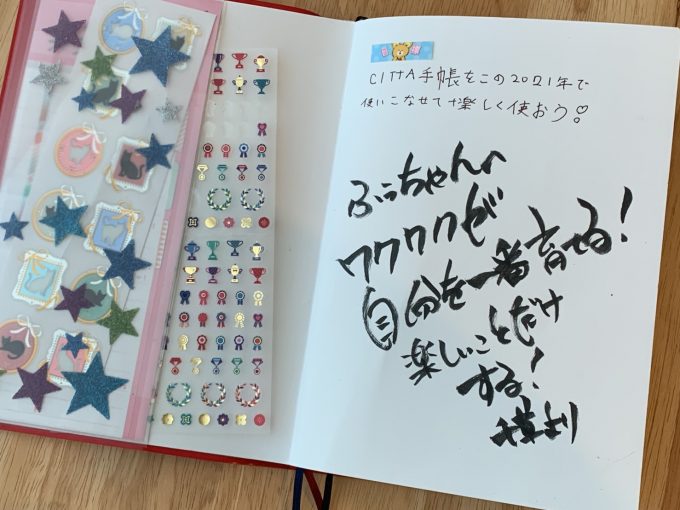 CITTA手帳をこの2021年で
使いこなせて+楽しく使おう!
ふっちゃんへ
ワクワクが
自分を一番育てる!
楽しいことだけ
する!
より